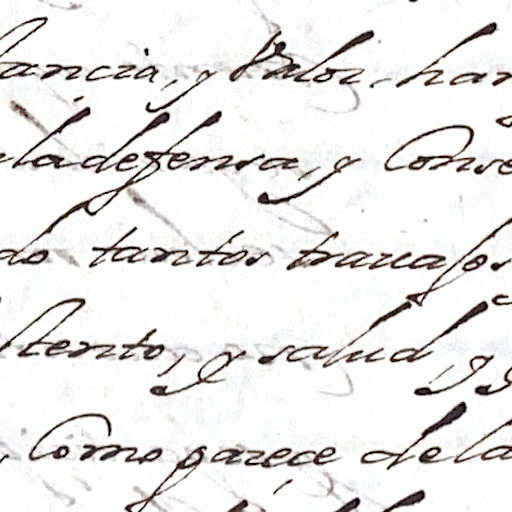 tancia, y Valor, han
ladefensa, y Conse
do tantos trauajos
stento, y salud, y
, Como pareçe dela